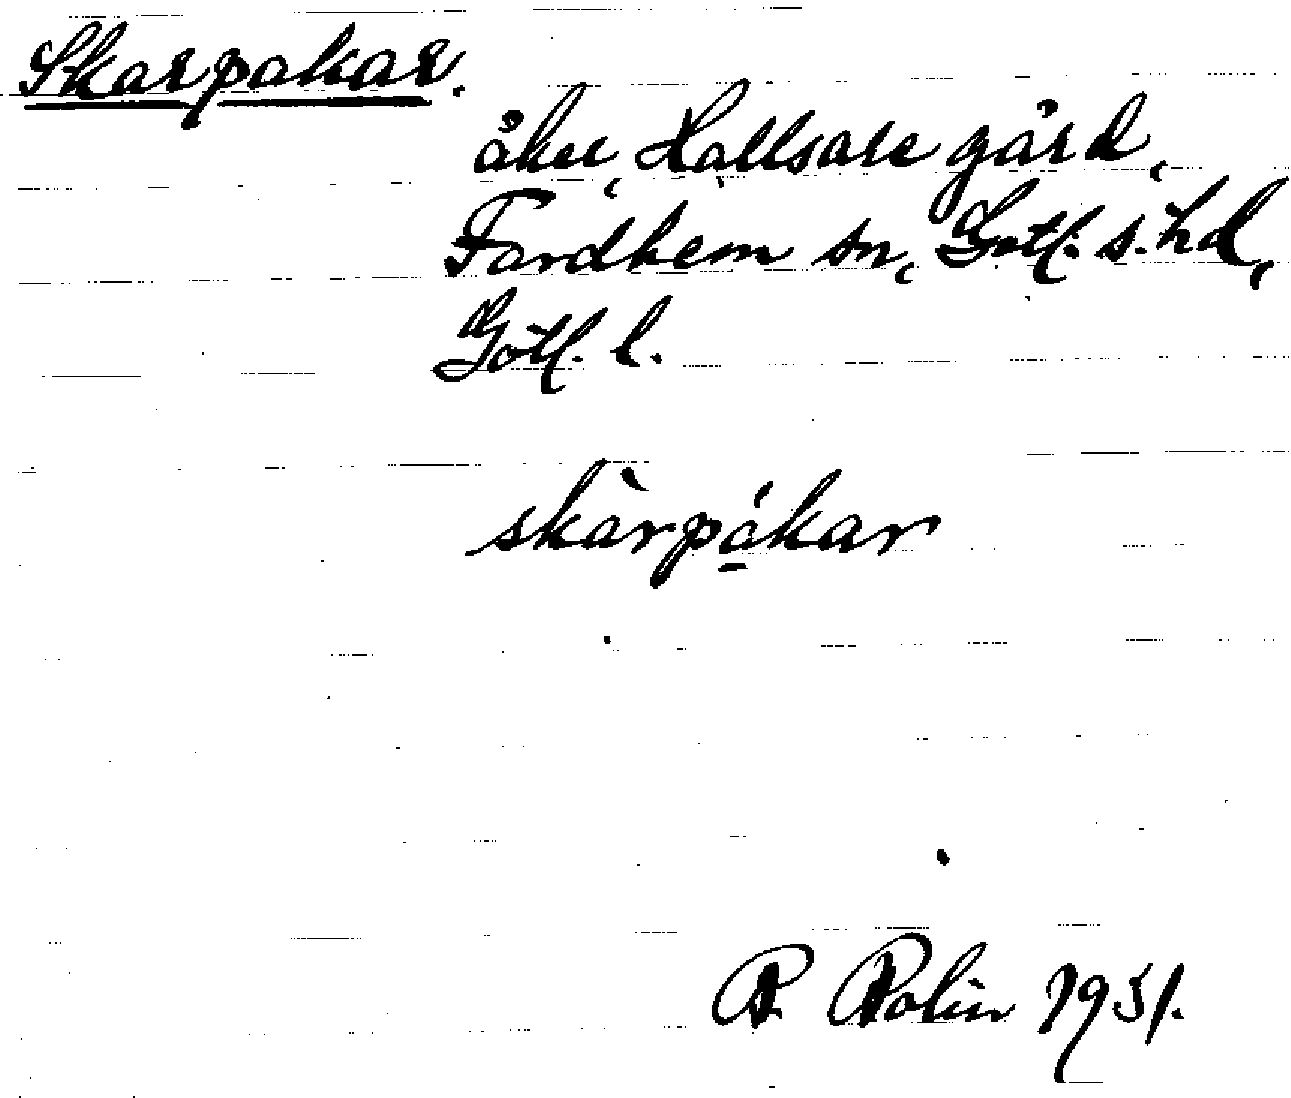 Skarpakar.
åker, Hallsare gård,
Fardhem sn, Gotl. s. hd,
Gotl. l.
skàrpákar
R. Rolin 1951.